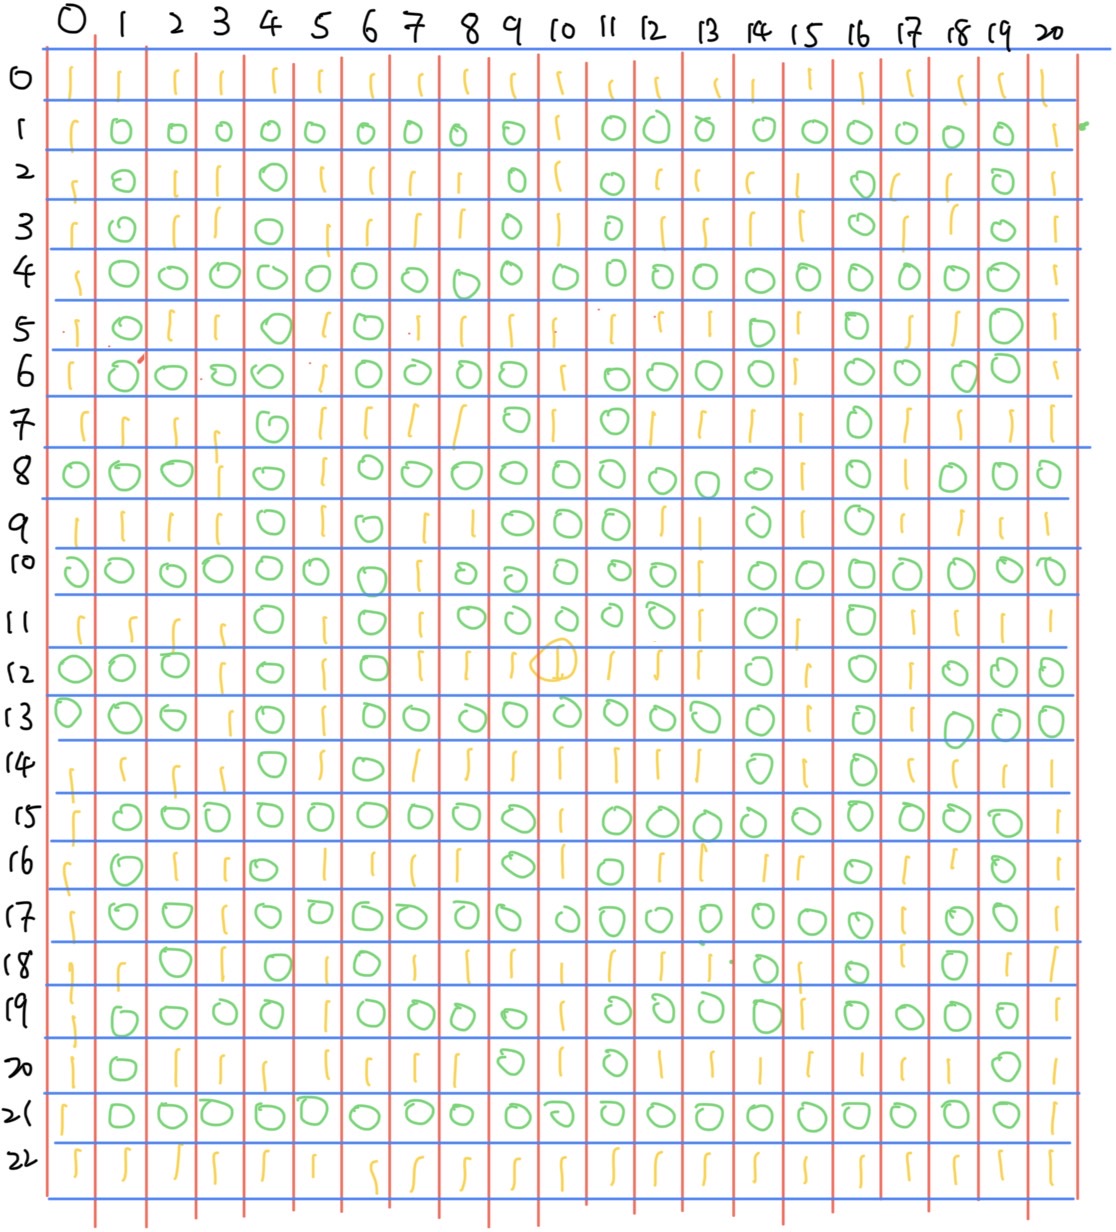 0 1 2 3 4 5 6 7 8 9 10 11 12 13 14 15 16 17 18 19 20
0 1 1 1 1 1 1 1 1 1 1 1 1 1 1 1 1 1 1 1 1 1
1 1 0 0 0 0 0 0 0 0 0 1 0 0 0 0 0 0 0 0 0 1
2 1 0 1 1 0 1 1 1 1 0 1 0 1 1 1 1 0 1 1 0 1
3 1 0 1 1 0 1 1 1 1 0 1 0 1 1 1 1 0 1 1 0 1
4 1 0 0 0 0 0 0 0 0 0 0 0 0 0 0 0 0 0 0 0 1
5 1 0 1 1 0 1 0 1 1 1 1 1 1 1 0 1 0 1 1 0 1
6 1 0 0 0 0 1 0 0 0 0 1 0 0 0 0 1 0 0 0 0 1
7 1 1 1 1 0 1 1 1 1 0 1 0 1 1 1 1 0 1 1 1 1
8 0 0 0 1 0 1 0 0 0 0 0 0 0 0 0 1 0 1 0 0 0
9 1 1 1 1 0 1 0 1 1 0 0 0 1 1 0 1 0 1 1 1 1
10 0 0 0 0 0 0 0 1 0 0 0 0 0 1 0 0 0 0 0 0 0
11 1 1 1 1 0 1 0 1 0 0 0 0 0 1 0 1 0 1 1 1 1
12 0 0 0 1 0 1 0 1 1 1 1 1 1 1 0 1 0 1 0 0 0
13 0 0 0 1 0 1 0 0 0 0 0 0 0 0 0 1 0 1 0 0 0
14 1 1 1 1 0 1 0 1 1 1 1 1 1 1 0 1 0 1 1 1 1
15 1 0 0 0 0 0 0 0 0 0 1 0 0 0 0 0 0 0 0 0 1
16 1 0 1 1 0 1 1 1 1 0 1 0 1 1 1 1 0 1 1 0 1
17 1 0 0 1 0 0 0 0 0 0 0 0 0 0 0 0 0 1 0 0 1
18 1 1 0 1 0 1 0 1 1 1 1 1 1 1 0 1 0 1 0 1 1
19 1 0 0 0 0 1 0 0 0 0 1 0 0 0 0 1 0 0 0 0 1
20 1 0 1 1 1 1 1 1 1 0 1 0 1 1 1 1 1 1 1 0 1
21 1 0 0 0 0 0 0 0 0 0 0 0 0 0 0 0 0 0 0 0 1
22 1 1 1 1 1 1 1 1 1 1 1 1 1 1 1 1 1 1 1 1 1